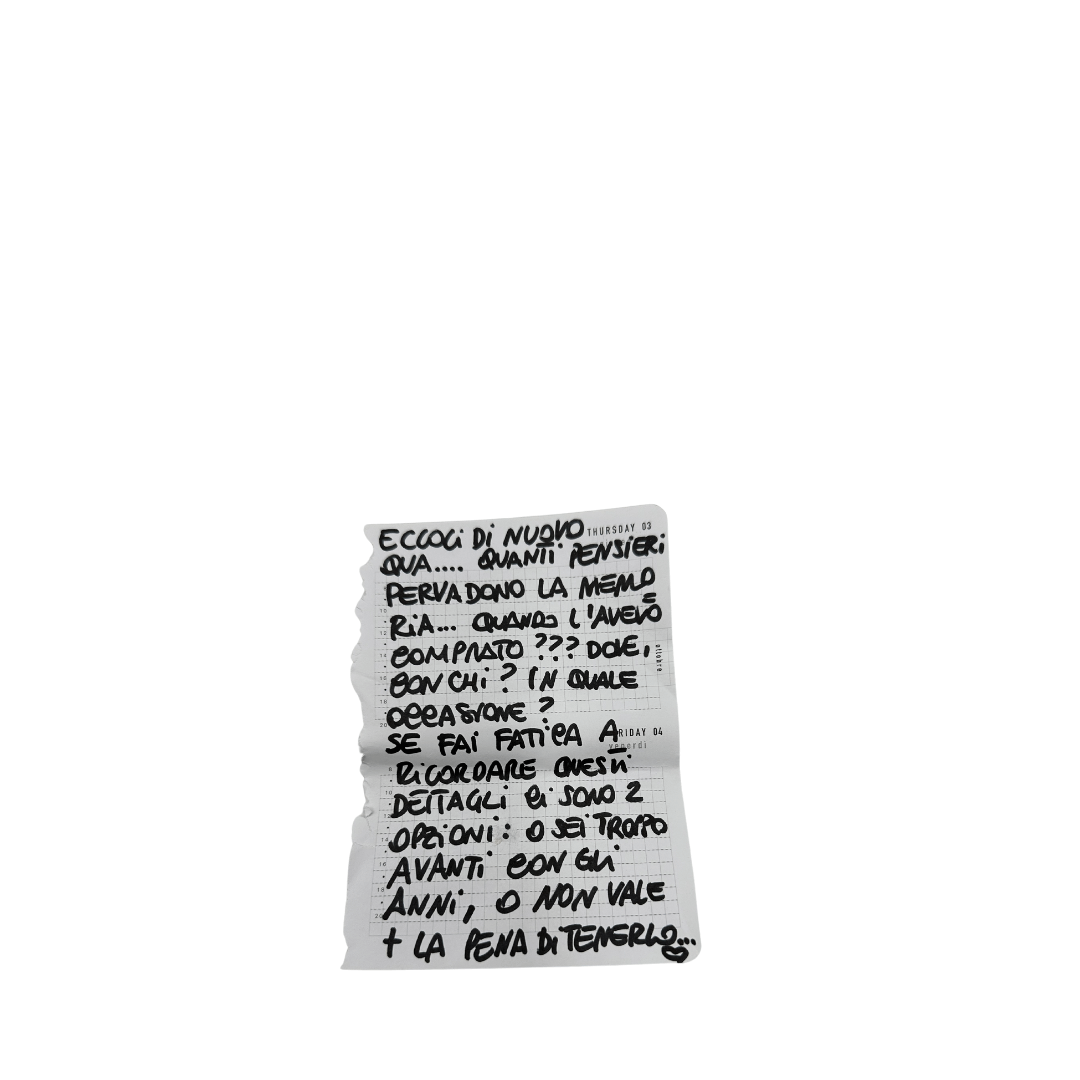 ECCOCi Di NUOVO THURSDAY 03
QUA.... QUANTi PENSiERi
PERVADONO LA MEMO
RiA... QUANDO L'AVEVO
COMPRATO ??? DOVE,
CON CHi? IN QUALE
OCCASIONE ?
SE FAI FATiCA A
FRIDAY 04
venerdì
RiCORDARE QUESTi
DETTAGLi Ci SONO 2
OPZiONi: O SEi TROPPO
AVANTi CON GLi
ANNi, O NON VALE
+ LA PENA Di TENERLO...
ottobre